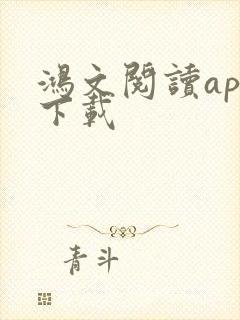 鴻文閱讀ap
下載
青斗